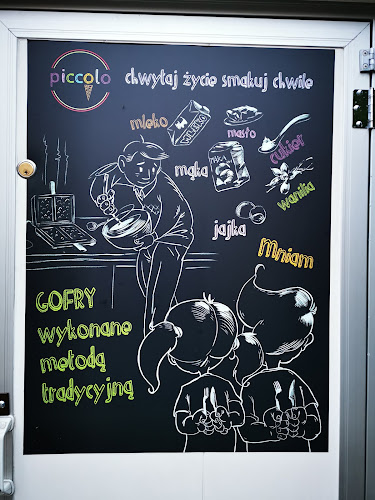 piccolo
chwytaj życie smakuj chwile
mleko
MLEKO
masło
cukier
mąka
MĄKA
wanilia
jajka
Mniam
GOFRY
wykonane
metodą
tradycyjną